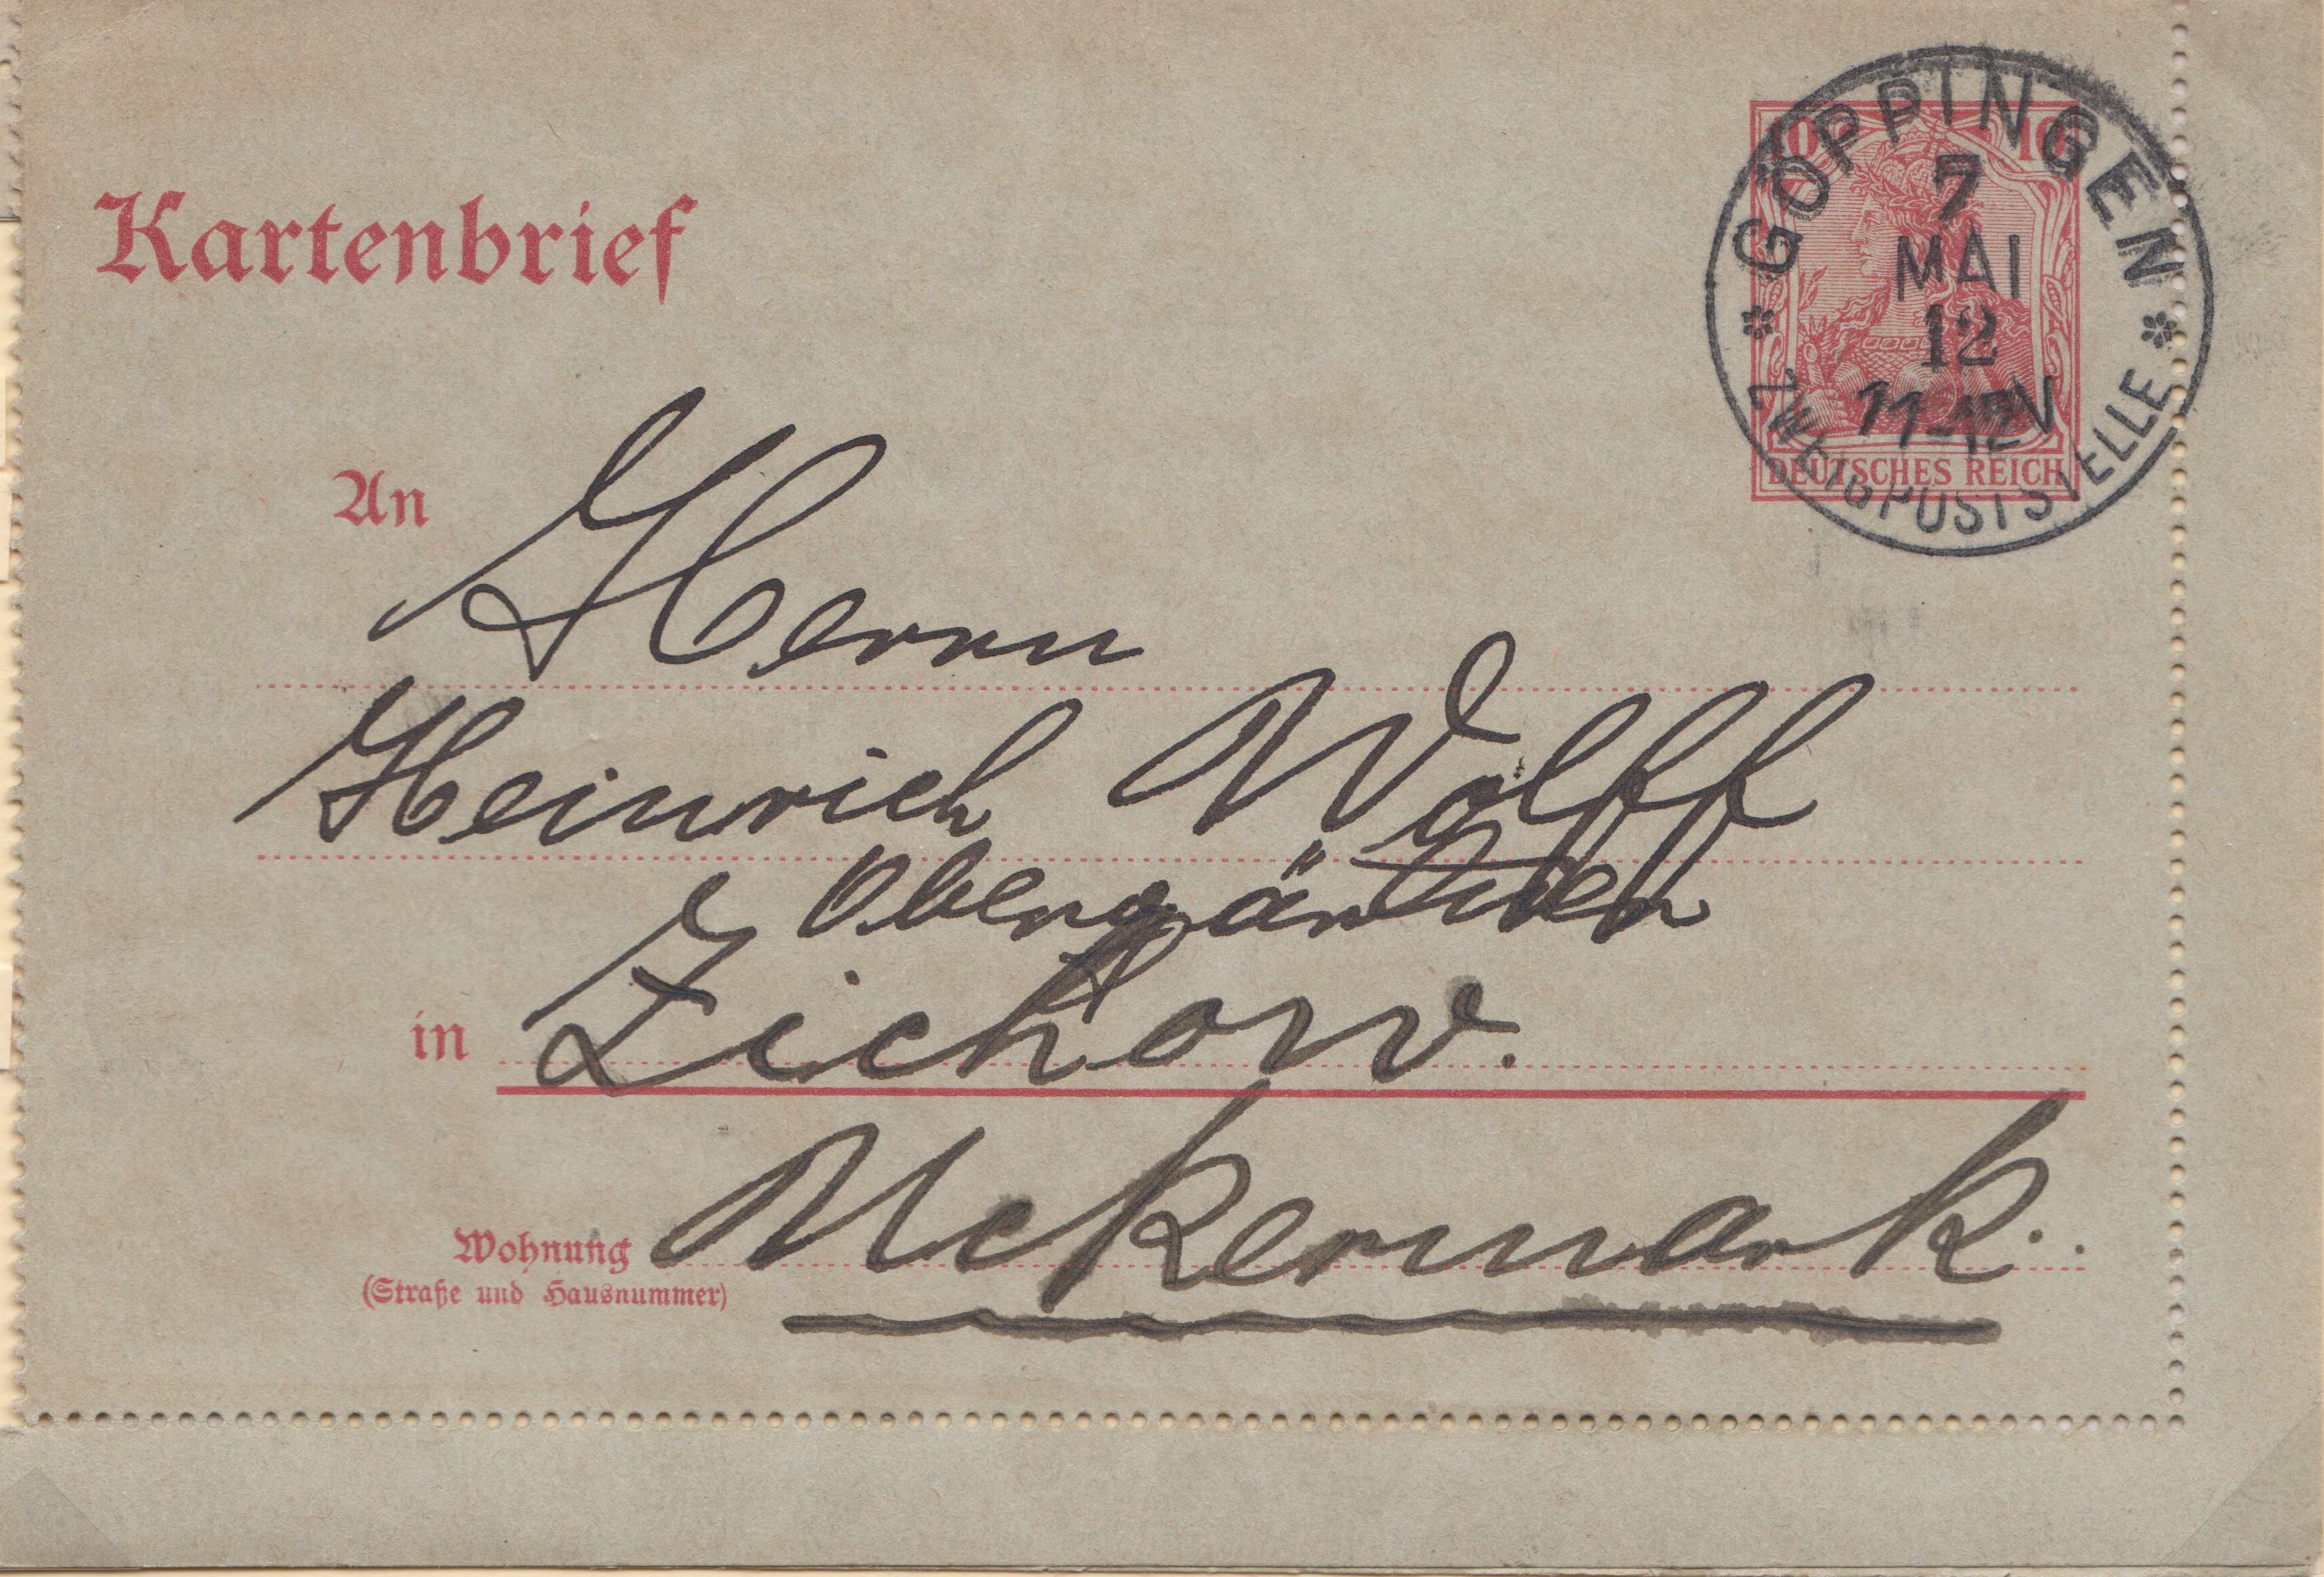 Kartenbrief
10 10
GÖPPINGEN
7
MAI
12
11-12V
* ZWEIGPOSTSTELLE *
DEUTSCHES REICH
An
Herrn
Heinrich Wolff
Obergärtner
in Zichow.
Uckermark.
Wohnung
(Straße und Hausnummer)